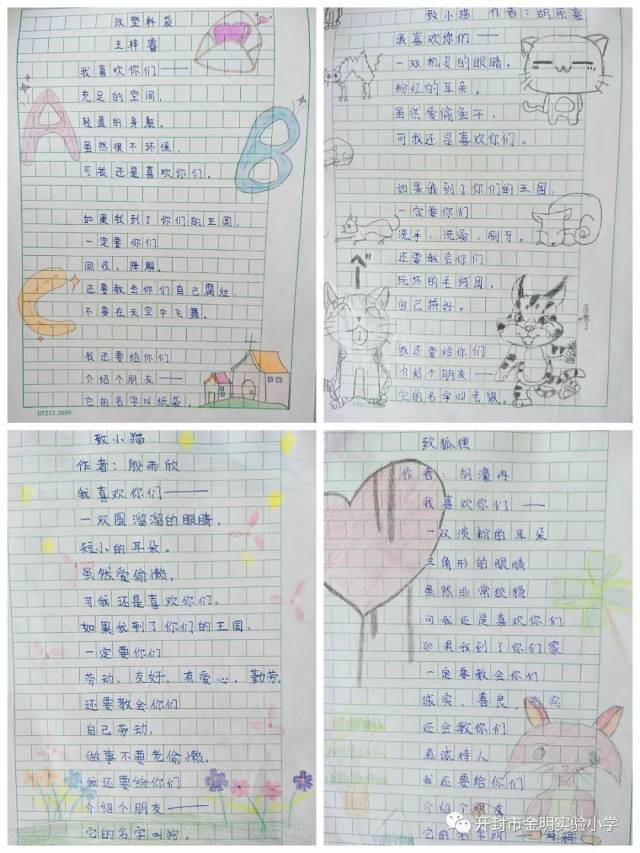 致塑料袋
王梓睿
我喜欢你们——
充足的空间,
轻盈的身躯。
虽然很不环保,
可我还是喜欢你们。
如果我到了你们的王国,
一定要你们
回收、降解。
还要教会你们自己腐烂
不要在天空中飞舞。
我还要给你们
介绍个朋友——
它的名字叫纸袋。
03212.3009
致小猫 作者:胡乐嘉
我喜欢你们——
一双机灵的眼睛,
粉红的耳朵。
虽然爱偷鱼干,
可我还是喜欢你们。
如果我到了你们的王国,
一定要你们
洗手、洗澡、刷牙。
还要教会你们
玩坏的毛线团,
自己拼好。
我还要给你们
介绍个朋友——
它的名字叫老鼠。
致小猫
作者:殷雨欣
我喜欢你们——
一双圆溜溜的眼睛,
短小的耳朵。
虽然爱偷懒,
可我还是喜欢你们。
如果我到了你们的王国,
一定要你们
劳动、友好、有爱心、勤劳。
还要教会你们
自己劳动,
做事不要老偷懒。
我还要给你们
介绍个朋友——
它的名字叫狗。
致狐狸
作者:胡潼冉
我喜欢你们——
一双淡粉的耳朵
三角形的眼睛
虽然非常狡猾
可我还是喜欢你们
如果我到了你们家
一定要教会你们
诚实、善良、
还会教你们
真诚待人
我还要给你们
介绍个朋友
它的名字叫
开封市金明实验小学